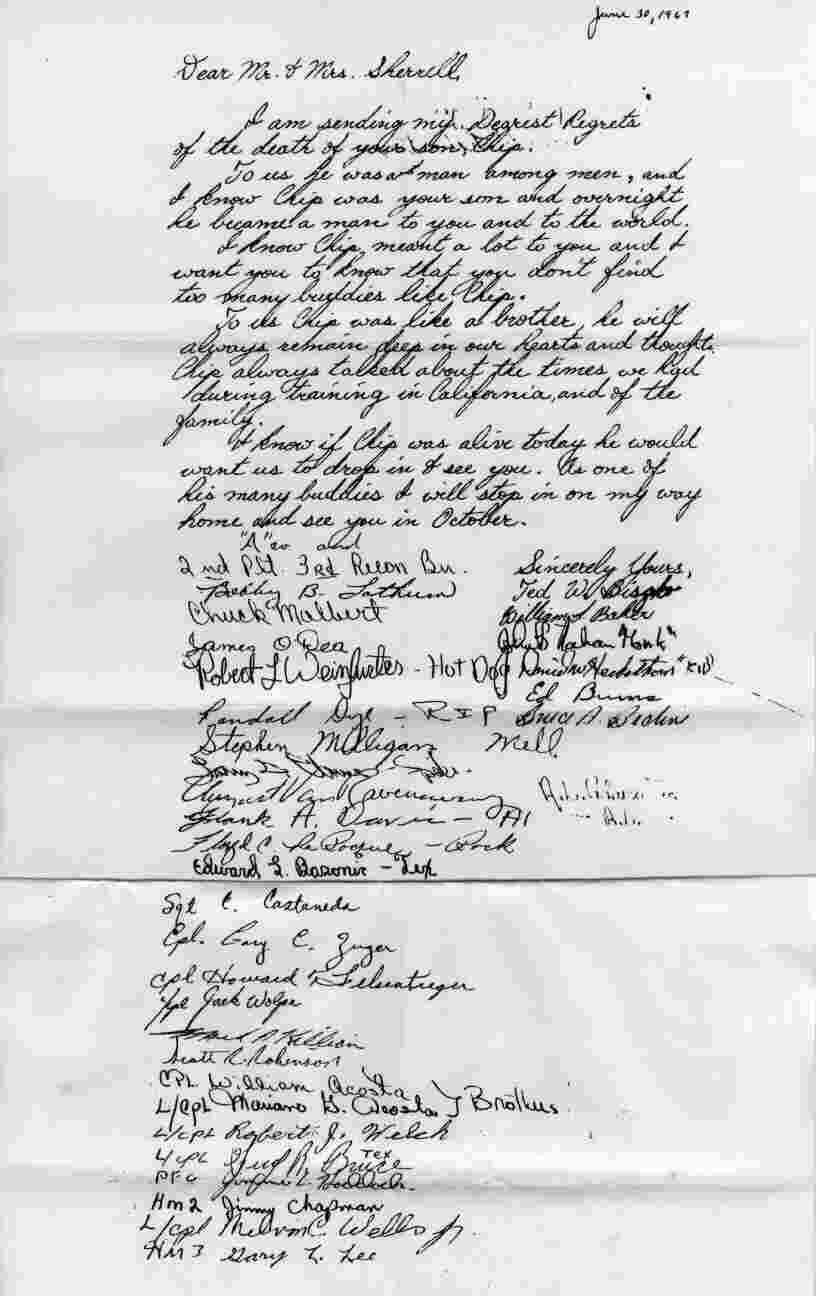 June 30, 1967
Dear Mr. & Mrs. Sherrell,
I am sending my Degrest Regrets
of the death of your son, Chip.
To us he was a man among men, and
I know Chip was your son and overnight
he became a man to you and to the world.
I know Chip meant a lot to you and I
want you to know that you don't find
too many buddies like Chip.
To us Chip was like a brother, he will
always remain deep in our hearts and thoughts.
Chip always talked about the times we had
during training in California, and of the
family.
I know if Chip was alive today he would
want us to drop in & see you. As one of
his many buddies I will stop in on my way
home and see you in October.
"A" co and
2nd Plt. 3rd Recon Bn.
Sincerely Yours,
B. Lathum
Ted W.
Chuck Malbert
William S. Baker
James O'Dea
"Honk"
Robert L Weinfurtes - Hot Dog
"Kid"
Ed Burns
Randall - RIP
Bruce A.
Stephen Milligan Mell
August Van
Frank A. Davis - Al
Floyd C. - Rock
Edward L. Bazonic - Tex
Sgt C. Castaneda
Cpl. Gary C. Zuger
Cpl Howard
Jack Wolpe
Killian
Scott R. Robinson
CPL William Acosta
L/Cpl Mariano G. Acosta } Brothus
L/CPL Robert J. Welch
L/CPL R. Bruce Tex
PFC
Hm2 Jimmy Chapman
L/Cpl Melvin C. Wells Jr.
HM3 Gary L. Lee